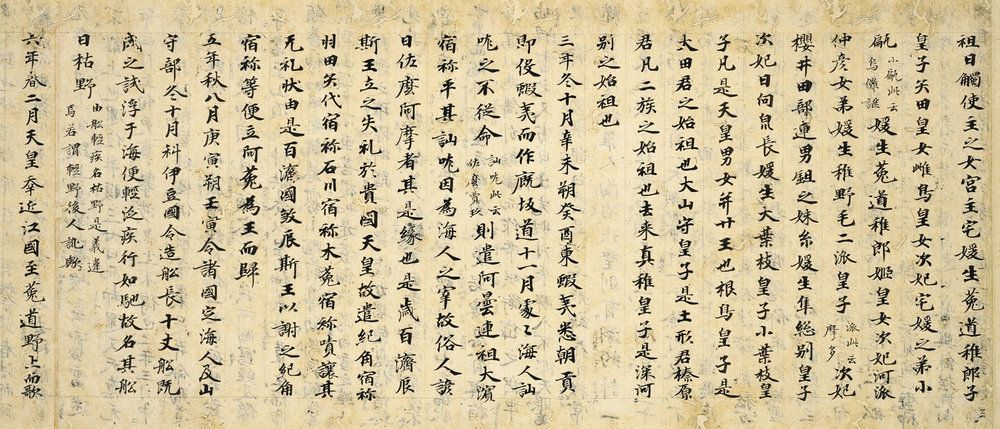 祖日觸使主之女宮主宅媛生菟道稚郎子
皇子矢田皇女雌鳥皇女次妃宅媛之弟小
甂小甂此云烏儺謎媛生菟道稚郎姬皇女次妃河派
仲彥女弟媛生稚野毛二派皇子派此云摩多次妃
櫻井田部連男鉏之妹糸媛生隼総別皇子
次妃日向泉長媛生大葉枝皇子小葉枝皇
子凡是天皇男女并廿王也根鳥皇子是
大田君之始祖也大山守皇子是土形君榛原
君凡二族之始祖也去来真稚皇子是深河
別之始祖也
三年冬十月辛未朔癸酉東蝦夷悉朝貢
即役蝦夷而作厩坂道十一月處〻海人訕
哤之不從命訕哤此云佐麼賣玖則遣阿曇連祖大濱
宿祢平其訕哤因為海人之宰故俗人諺
曰佐麼阿摩者其是緣也是歲百濟辰
斯王立之失礼於貴國天皇故遣紀角宿祢
羽田矢代宿祢石川宿祢木菟宿祢嘖讓其
无礼狀由是百濟國殺辰斯王以謝之紀角
宿祢等便立阿菟為王而歸
五年秋八月庚寅朔壬寅令諸國定海人及山
守部冬十月科伊豆國令造船長十丈船既
成之試浮于海便輕泛疾行如馳故名其船
曰枯野由船輕疾名枯野是義違焉若謂輕野後人訛歟
六年春二月天皇幸近江國至菟道野上而歌